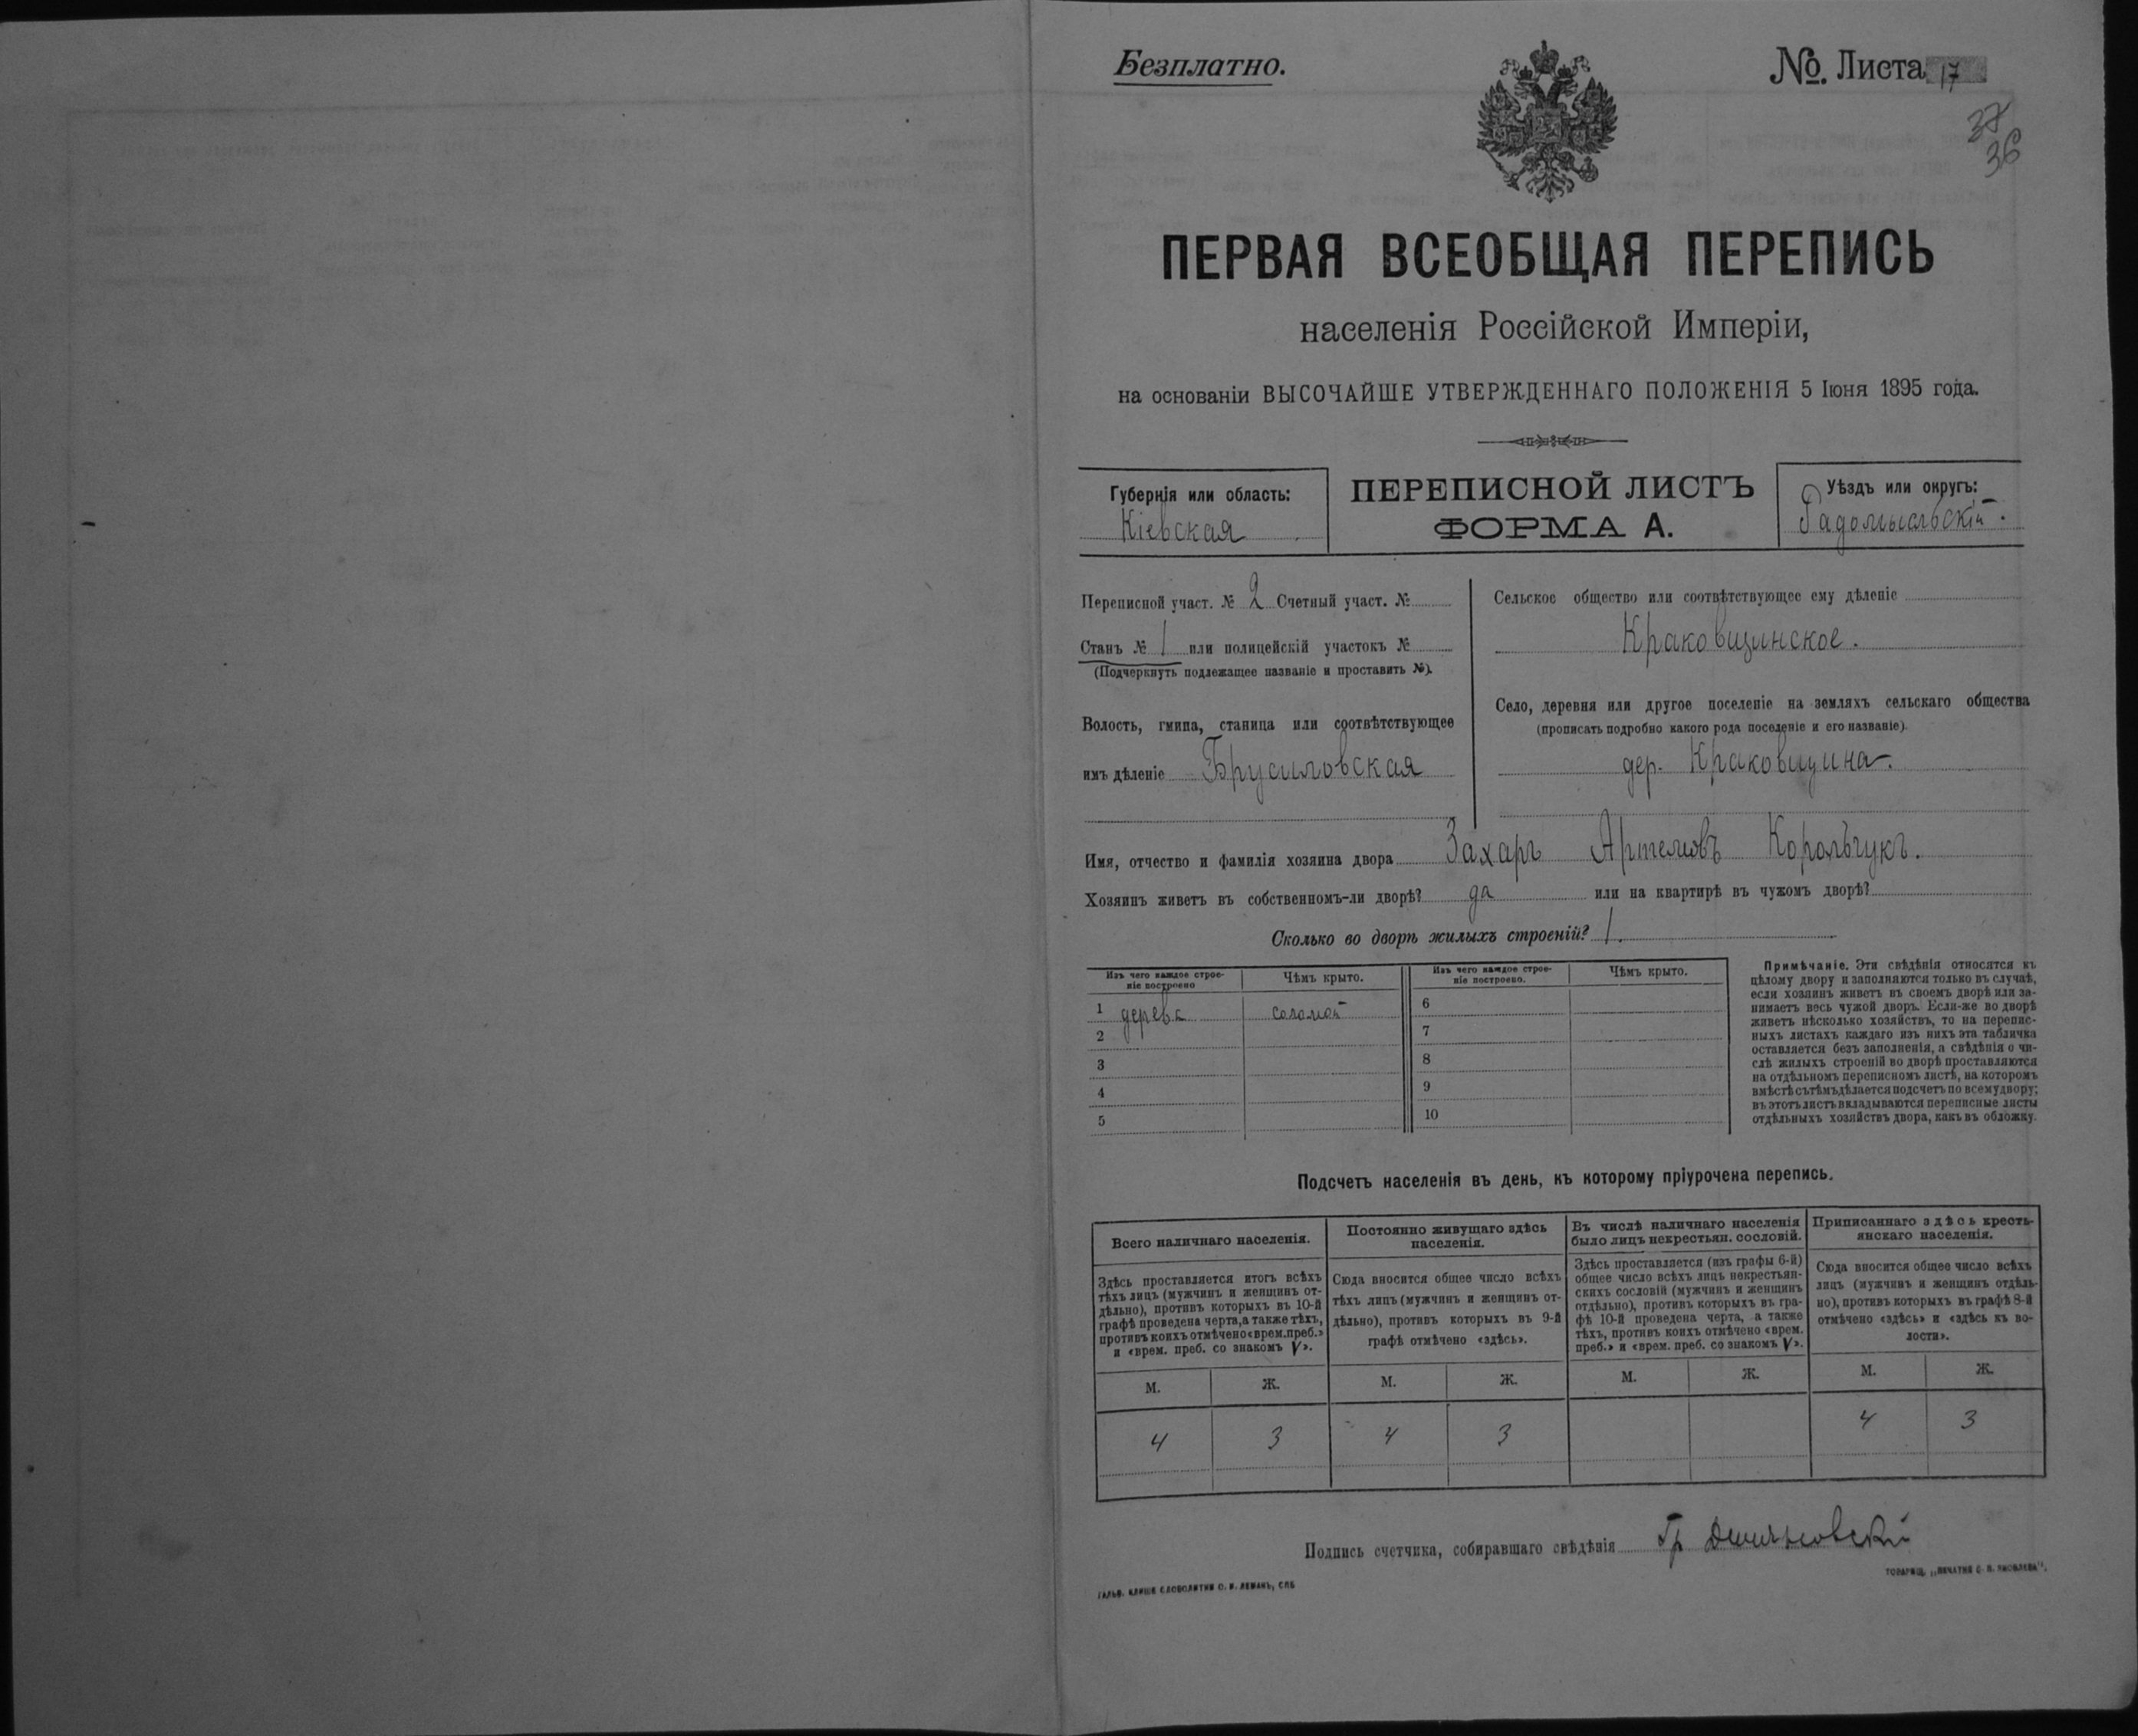 Безплатно.
№. Листа 17
37
36
ПЕРВАЯ ВСЕОБЩАЯ ПЕРЕПИСЬ
населенія Россійской Имперіи,
на основаніи ВЫСОЧАЙШЕ УТВЕРЖДЕННАГО ПОЛОЖЕНІЯ 5 Іюня 1895 года.
Губернія или область:
Кіевская
ПЕРЕПИСНОЙ ЛИСТЪ
ФОРМА А.
Уѣздъ или округъ:
Радомысльскій.
Переписной участ. № 2 Счетный участ. №
Станъ № 1 или полицейскій участокъ №
(Подчеркнуть подлежащее названіе и проставить №).
Волость, гмина, станица или соотвѣтствующее
имъ дѣленіе Брусиловская
Сельское общество или соотвѣтствующее ему дѣленіе
Краковщинское.
Село, деревня или другое поселеніе на земляхъ сельскаго общества
(прописать подробно какого рода поселеніе и его названіе).
дер. Краковщина.
Имя, отчество и фамилія хозяина двора Захаръ Артемовъ Корольчукъ.
Хозяинъ живетъ въ собственномъ-ли дворѣ? да или на квартирѣ въ чужомъ дворѣ?
Сколько во дворѣ жилыхъ строеній? 1.
Изъ чего каждое строе-
ніе построено
Чѣмъ крыто.
Изъ чего каждое строе-
ніе построено.
Чѣмъ крыто.
1 дерева соломой
2
3
4
5
6
7
8
9
10
Примѣчаніе. Эти свѣдѣнія относятся къ
цѣлому двору и заполняются только въ случаѣ,
если хозяинъ живетъ въ своемъ дворѣ или за-
нимаетъ весь чужой дворъ. Если-же во дворѣ
живетъ нѣсколько хозяйствъ, то на перепис-
ныхъ листахъ каждаго изъ нихъ эта табличка
оставляется безъ заполненія, а свѣдѣнія о чи-
слѣ жилыхъ строеній во дворѣ проставляются
на отдѣльномъ переписномъ листѣ, на которомъ
вмѣстѣ съ тѣмъ дѣлается подсчетъ по всему двору;
въ этотъ листъ вкладываются переписные листы
отдѣльныхъ хозяйствъ двора, какъ въ обложку.
Подсчетъ населенія въ день, къ которому пріурочена перепись.
Всего наличнаго населенія.
Здѣсь проставляется итогъ всѣхъ
тѣхъ лицъ (мужчинъ и женщинъ от-
дѣльно), противъ которыхъ въ 10-й
графѣ проведена черта, а также тѣхъ,
противъ коихъ отмѣчено «врем. преб.»
и «врем. преб. со знакомъ V».
Постоянно живущаго здѣсь
населенія.
Сюда вносится общее число всѣхъ
тѣхъ лицъ (мужчинъ и женщинъ от-
дѣльно), противъ которыхъ въ 9-й
графѣ отмѣчено «здѣсь».
Въ числѣ наличнаго населенія
было лицъ некрестьян. сословій.
Здѣсь проставляется (изъ графы 6-й)
общее число всѣхъ лицъ некрестьян-
скихъ сословій (мужчинъ и женщинъ
отдѣльно), противъ которыхъ въ гра-
фѣ 10-й проведена черта, а также
тѣхъ, противъ коихъ отмѣчено «врем.
преб.» и «врем. преб. со знакомъ V».
Приписаннаго здѣсь кресть-
янскаго населенія.
Сюда вносится общее число всѣхъ
лицъ (мужчинъ и женщинъ отдѣль-
но), противъ которыхъ въ графѣ 8-й
отмѣчено «здѣсь» и «здѣсь къ во-
лости».
М. Ж. М. Ж. М. Ж. М. Ж.
4 3 4 3 4 3
Подпись счетчика, собиравшаго свѣдѣнія Гр
ГАЛЬВ. КЛИШЕ СЛОВОЛИТНИ О. И. ЛЕМАНЪ, СПБ
ТОВАРИЩ. „ПЕЧАТНЯ С. П. ЯКОВЛЕВА".